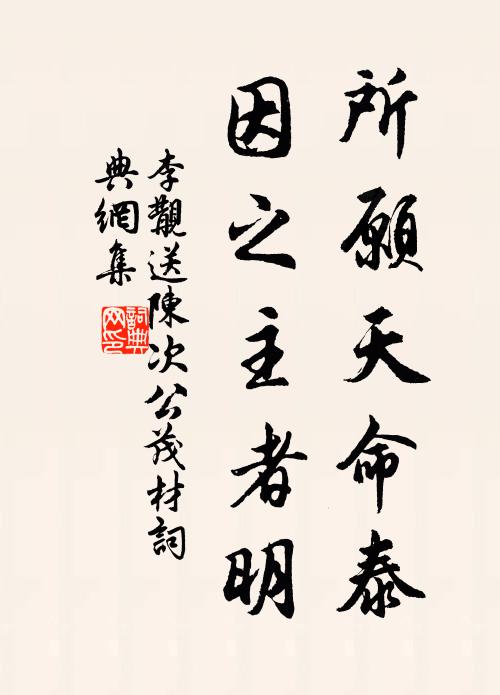 所願天命泰
因之主者明
李觀送陳次公茂材詞
典網集
詞典網印